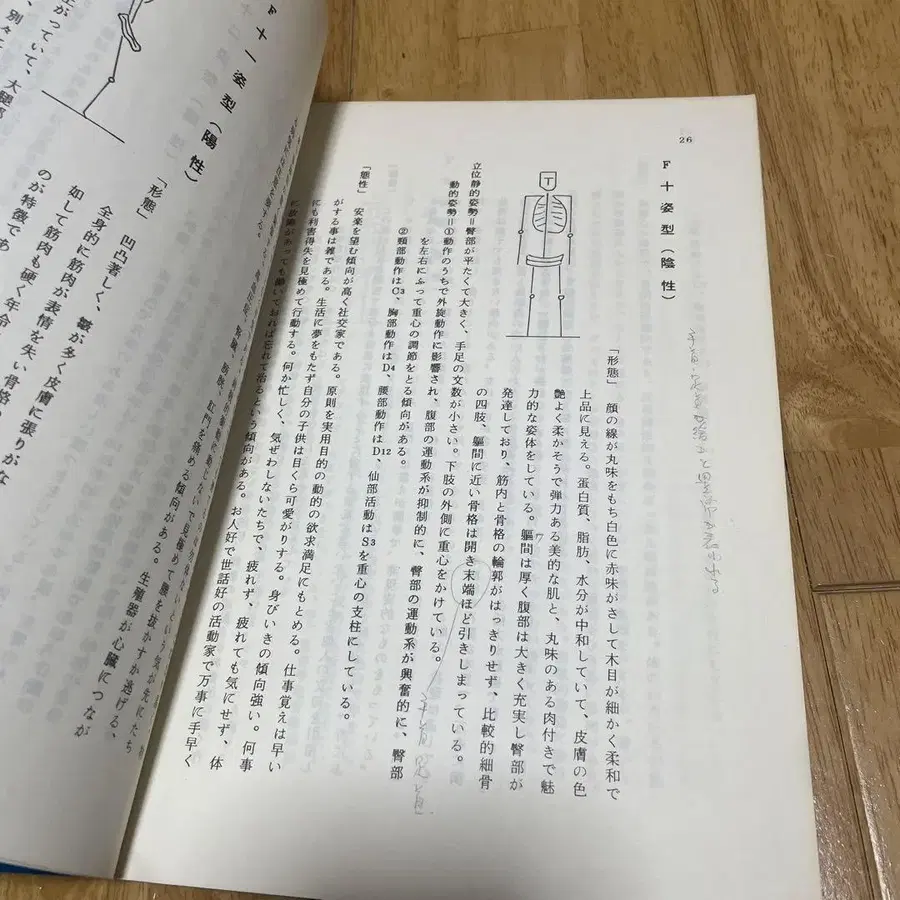 26
F 十 姿 型 (陰 性)
「形態」 顔の線が丸味をもち白色に赤味がさして木目が細かく柔和で
上品に見える。蛋白質、脂肪、水分が中和していて、皮膚の色
艶よく柔かそうで弾力ある美的な肌と、丸味のある肉付きで魅
力的な姿体をしている。軀間は厚く腹部は大きく充実し臀部が
発達しており、筋内と骨格の輪郭がはっきりせず、比較的細骨
の四肢、軀間に近い骨格は開き末端ほど引きしまっている。
立位静的姿勢=臀部が平たくて大きく、手足の文数が小さい。下肢の外側に重心をかけている。
動的姿勢=①動作のうちで外旋動作に影響され、腹部の運動系が抑制的に、臀部の運動系が興奮的に、臀部
を左右にふって重心の調節をとる傾向がある。
②頸部動作はC3、胸部動作はD4、腰部動作はD12、仙部活動はS3を重心の支柱にしている。
「態性」 安楽を望む傾向が高く社交家である。原則を実用目的の動的の欲求満足にもとめる。仕事覚えは早い
がする事は雑である。生活に夢をもたず自分の子供は目くら可愛がりする。身びいきの傾向強い。何事
にも利害得失を見極めて行動する。何か忙しく、気ぜわしないたちで、疲れず、疲れても気にせず、体
に故障があっても働いておれば忘れて治るという傾向がある。お人好で世話好の活動家で万事に手早く
F 十 一 姿 型 (陽 性)
「形態」 凹凸著しく、皺が多く皮膚に張りがな
全身的に筋肉が表情を失い骨格
如して筋肉も硬く年令
のが特徴であ
がっていて、大腿部
別々に
肛門を痛める傾向がある。生殖器が心臓につなが
見極めて腰を抜かすか逃げる、